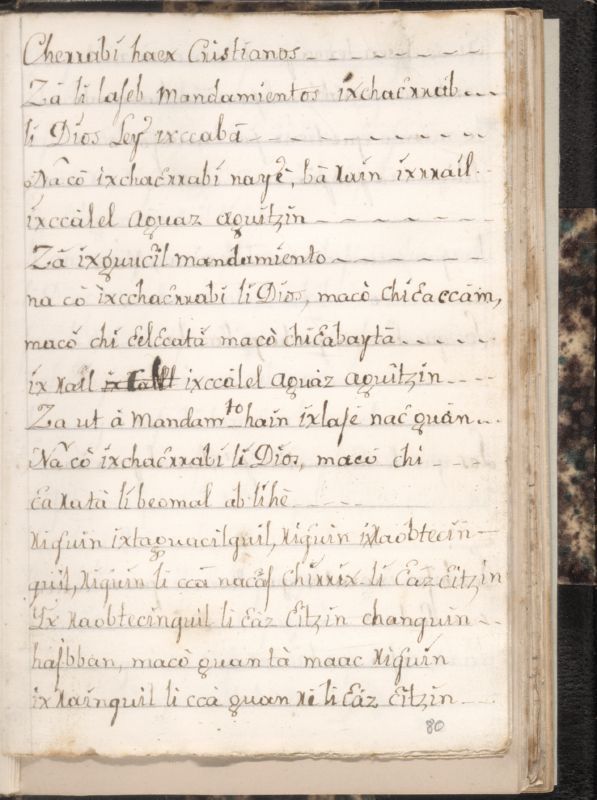 Cherrabi haex Cristianos
Zâ li laſeb mandamientos ixchaćrrab
li Dios Ley ixccabâ
Nacò ixchaćrrabi naye, bâ xain ixxxâil
ixccàlel aguaz aguitzin
Zâ ixguucîl mandamiento
na cò ìxcchaćrrabi li Dios, macò chiɛaccâm,
macò chi ɛelɛcatâ macò chiɛabaytâ
ix xaîl ixccâlel aguàz aguîtzin
Za ut â Mandam.to hain ixlaſe nac guan
Nacò ixchaćrrabi li Dios, macò chi
ɛaxatâ li beomal ab lihè
xiguin ixtaguacilguil, xiguin ixxaobtecin
guil, xiguin li ccâ nacaſ Chixxix li ɛâz ɛitzin
Yx xaobtecinguil li ɛâz ɛitzin changuin
haſbban, macò guantà maac xiguin
ix xainguil li ccà guan xi li ɛâz ɛitzin
80